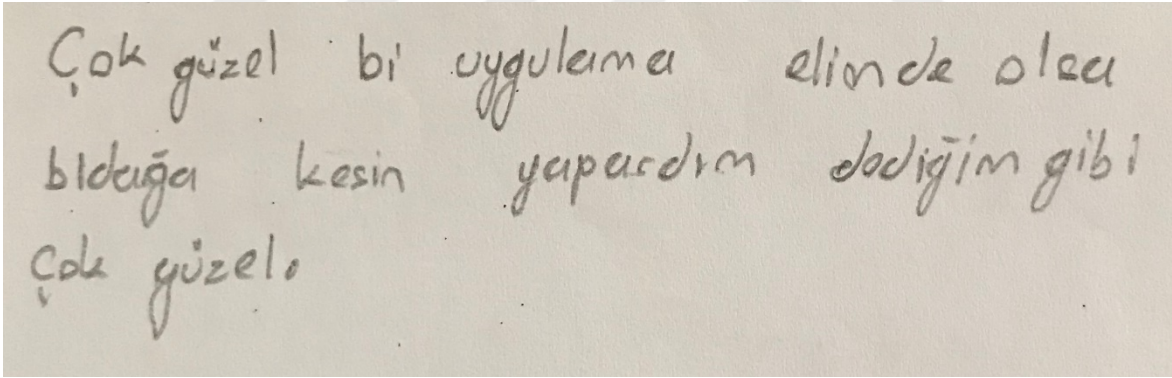 Çok güzel bi uygulama elimde olsa
bldağa kesin yapardım dediğim gibi
çok güzel.